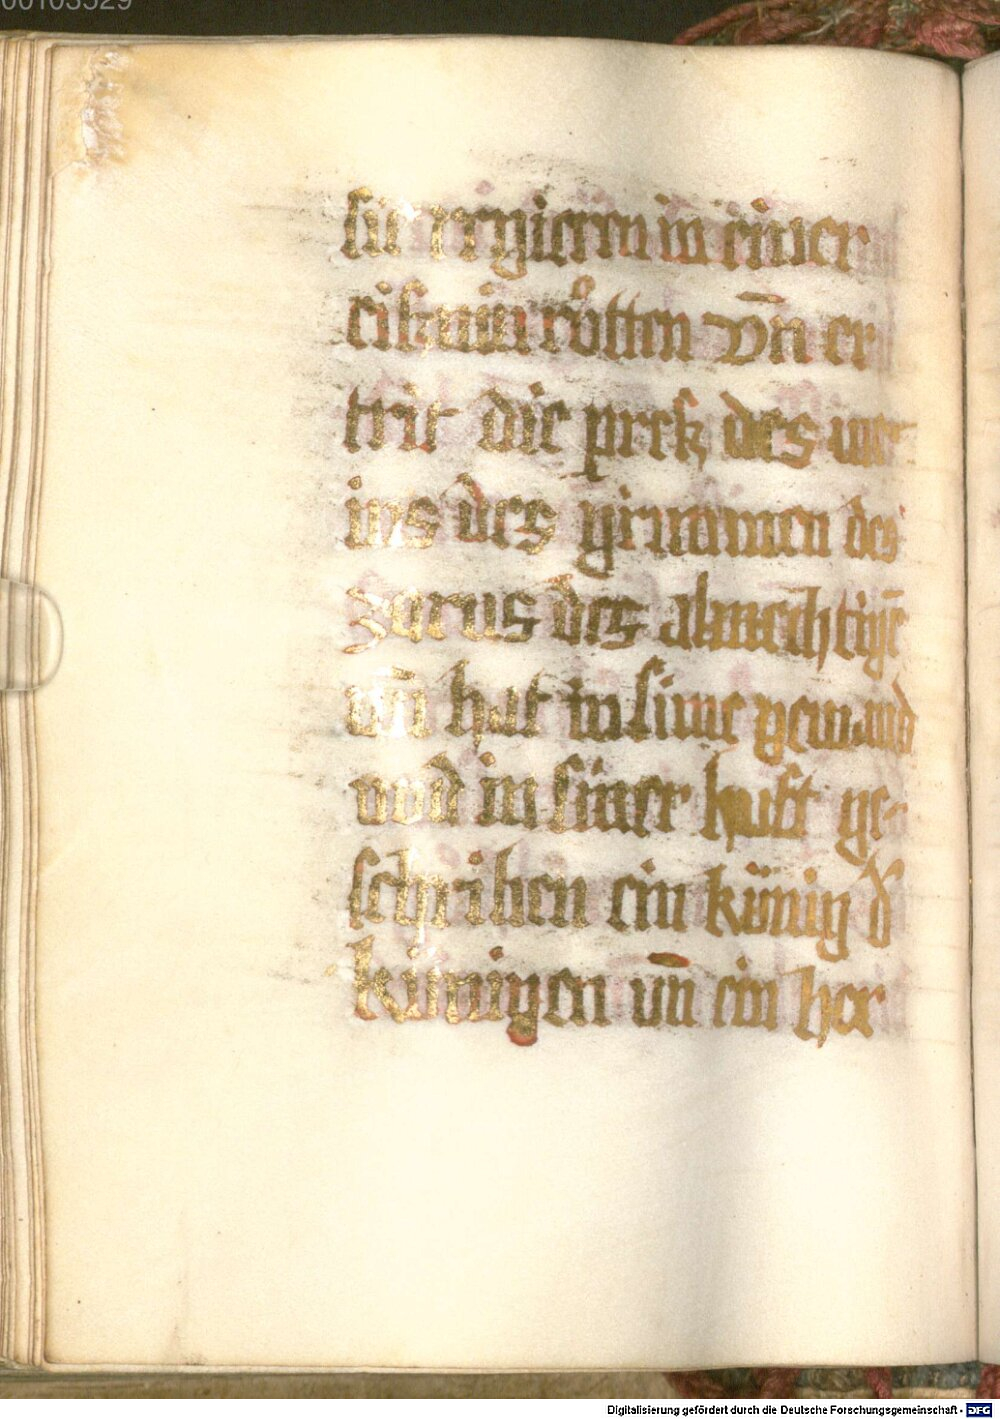 00103529
sü regieren in einer
eisnin růtten vn̄ er
trit die presz des we
ins des grimmen des
zorns des almechtigē
vn̄ hat in sime gewand
vnd in siner huft ge-
schriben ein künig d̓
künigen vn̄ ein her
Digitalisierung gefördert durch die Deutsche Forschungsgemeinschaft - DFG